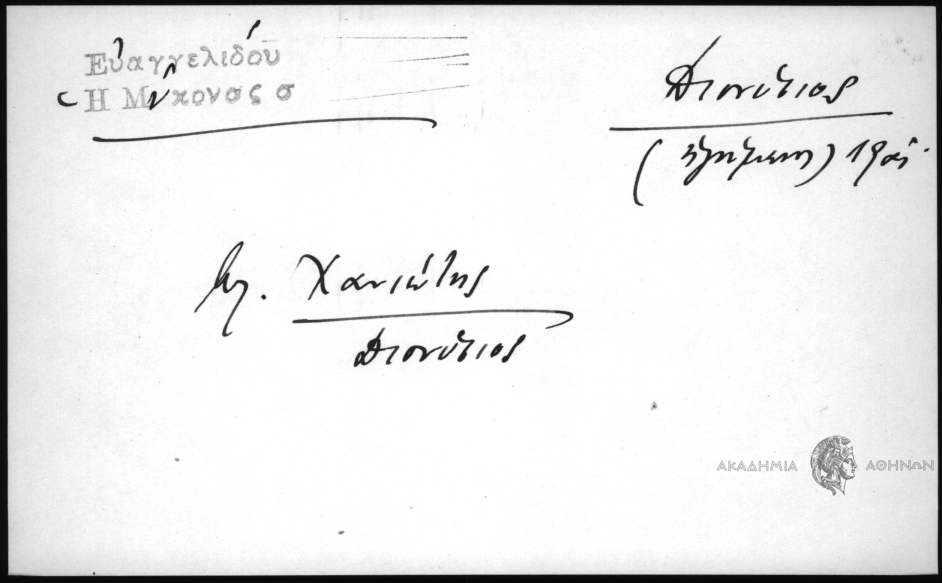 Εὐαγγελίδου
Ἡ Μύκονος σ
Διονύσιος
(ἡγούμενος) 19ος
βλ. Χανιώτης
Διονύσιος
ΑΚΑΔΗΜΙΑ ΑΘΗΝΩΝ